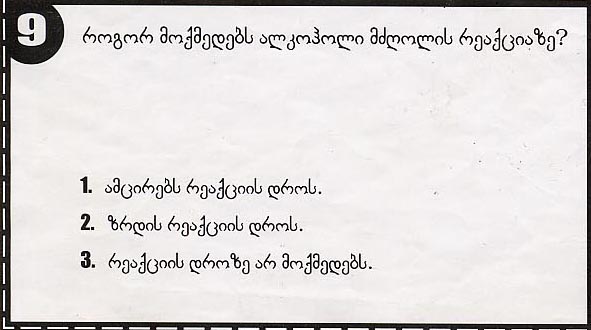 9
როგორ მოქმედებს ალკოჰოლი მძღოლის რეაქციაზე?
1. ამცირებს რეაქციის დროს.
2. ზრდის რეაქციის დროს.
3. რეაქციის დროზე არ მოქმედებს.